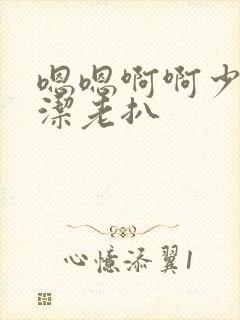 嗯嗯啊啊少
潔老扒
心憶添翼1